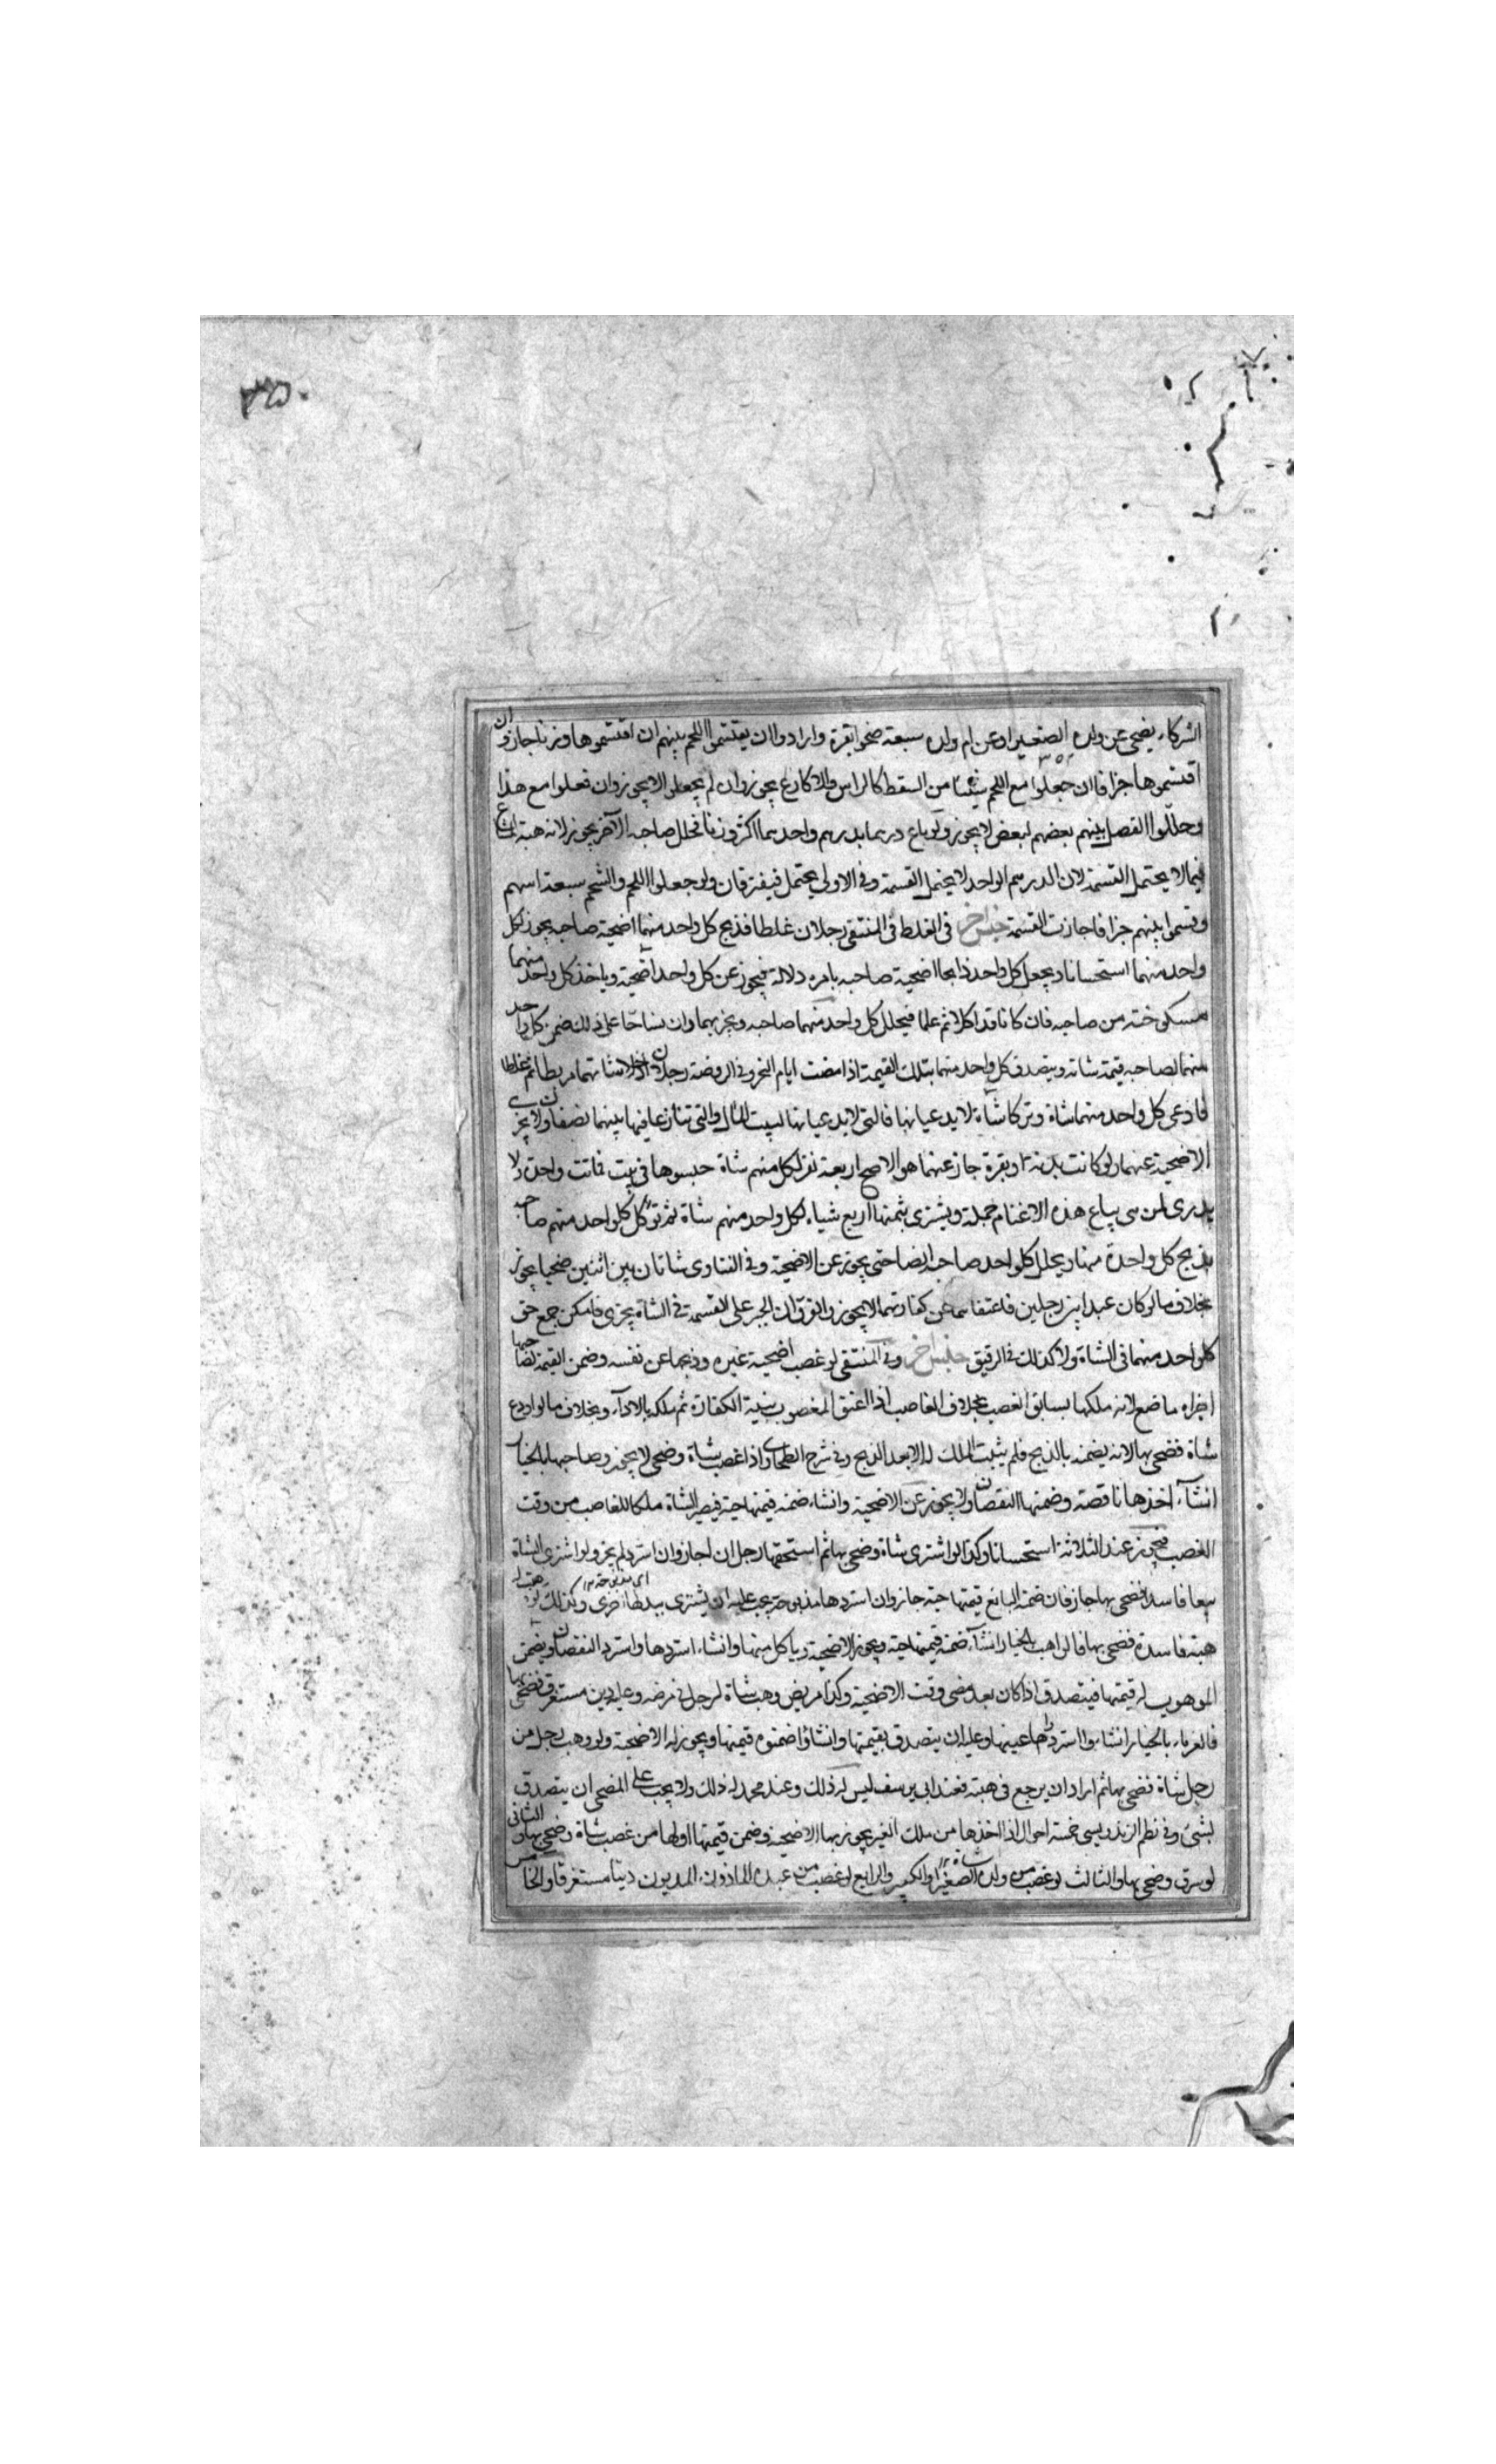 ٣٥٠
الشركاء يضحى عن ولده الصغير او عن ام ولده سبعة ضحوا بقرة وارادوا ان يقتسموا اللحم بينهم ان اقتسموها وزنا جاز وان
اقتسموها جزافا ان جعلوا مع اللحم شيئا من السقط كالراس والاكارع يجوز وان لم يجعلوا لا يجوز وان فعلوا مع هذا
وحللوا الفصل بينهم بعضهم لبعض لا يجوز ولو باع درهما بدرهم واحدهما اكثر وزنا فحلل صاحبه الآخر يجوز لانه هبة المشاع
فيما لا يحتمل القسمة لان الدرهم الواحد لا يحتمل القسمة وفى الاولى يحتمل فيفترقان ولو جعلوا اللحم والشحم سبعة اسهم
وقسموا بينهم جزافا جازت القسمة جنس آخر فى الغلط فى المنتقى رجلان غلطا فذبح كل واحد منهما اضحية صاحبه يجوز لكل
واحد منهما استحسانا ويجعل كل واحد ذابحا اضحية صاحبه بامره دلالة فيجوز عن كل واحد اضحية وياخذ كل واحد منهما
مسلوخته من صاحبه فان كانا قد اكلا ثم علما فيحلل كل واحد منهما صاحبه ويجزيهما وان تشاحا على ذلك ضمن كل واحد
منهما لصاحبه قيمة شاته ويتصدق كل واحد منهما بتلك القيمة اذا مضت ايام النحر وفى الروضة رجلان ادخلا شاتهما مربطا ثم غلطا
فادعى كل واحد منهما شاة وتركا شاة لا يدعيانها فالتى لا يدعيانها لبيت المال والتى تنازعا فيها بينهما نصفان ولا يجزى
الاضحية عنهما ولو كانت بدنة او بقرة جاز عنهما هو الاصح اربعة نفر لكل منهم شاة حبسوها فى بيت فماتت واحدة لا
يدرى لمن هى يباع هذه الاغنام جملة ويشترى بثمنها اربع شياه لكل واحد منهم شاة ثم توكل كل واحد منهم صاحبه
بذبح كل واحدة منها ويحلل كل واحد صاحبه ايضا حتى يجوز عن الاضحية وفى الفتاوى شاتان بين اثنين ضحيا يجوز
بخلاف ما لو كان عبدا بين رجلين فاعتقاهما عن كفارتهما لا يجوز والفرق ان الجبر على القسمة فى الشاة يجرى فامكن جمع حق
كل واحد منهما فى الشاة ولا كذلك فى الرقيق جنس آخر وفى المنتقى لو غصب اضحية غيره وذبحها عن نفسه وضمن القيمة لصاحبها
اجزاه ما صنع لانه ملكها بسابق الغصب بخلاف الغاصب اذا اعتق المغصوب بنية الكفارة ثم ملكه بالاداء وبخلاف ما لو اودع
شاة فضحى بها لانه يضمنه بالذبح فلم يثبت الملك له الا بعد الذبح وفى شرح الطحاوى واذا غصب شاة وضحى لا يجوز وصاحبها بالخيار
ان شاء اخذها ناقصة وضمنها النقصان ولا يجوز عن الاضحية وان شاء ضمنه قيمتها حية فيصير الشاة ملكا للغاصب من وقت
الغصب فيجوز عند الثلاثة استحسانا وكذا لو اشترى شاة وضحى بها ثم استحقها رجل ان اجاز وان استرد لم يجز ولو اشترى الشاة
بيعا فاسدا فضحى بها جاز فان ضمنه البائع قيمتها حية جاز وان استردها مذبوحة يجب عليه ان يشترى اخرى وكذلك لو وهبت له
هبة فاسدة فضحى بها فالواهب بالخيار ان شاء ضمنه قيمتها حية ويجوز الاضحية وياكل منها وان شاء استردها واسترد النقصان ويضمن
الموهوب له قيمتها فيتصدق اذا كان بعد مضى وقت الاضحية وكذا مريض وهب شاة لرجل فى مرضه وعليه دين مستغرق فضحى بها
فالغرماء بالخيار ان شاؤا استردها عينها وعليه ان يتصدق بقيمتها وان شاؤا ضمنوه قيمتها ويجوز له الاضحية ولو وهب رجل من
رجل شاة فضحى بها ثم اراد ان يرجع فى هبته فعند ابى يوسف ليس له ذلك وعند محمد له ذلك ولا يجب على المضحى ان يتصدق
بشئ وفى نظم الزندويسى خمسة احوال اذا اخذها من ملك الغير يجوز بها الاضحية وضمن قيمتها اولها من غصب شاة وضحى بها والثانى
لو سرق وضحى بها والثالث لو غصب من ولده الصغير او الكبير والرابع لو غصب من عبده الماذون المديون دينا مستغرقا والخامس